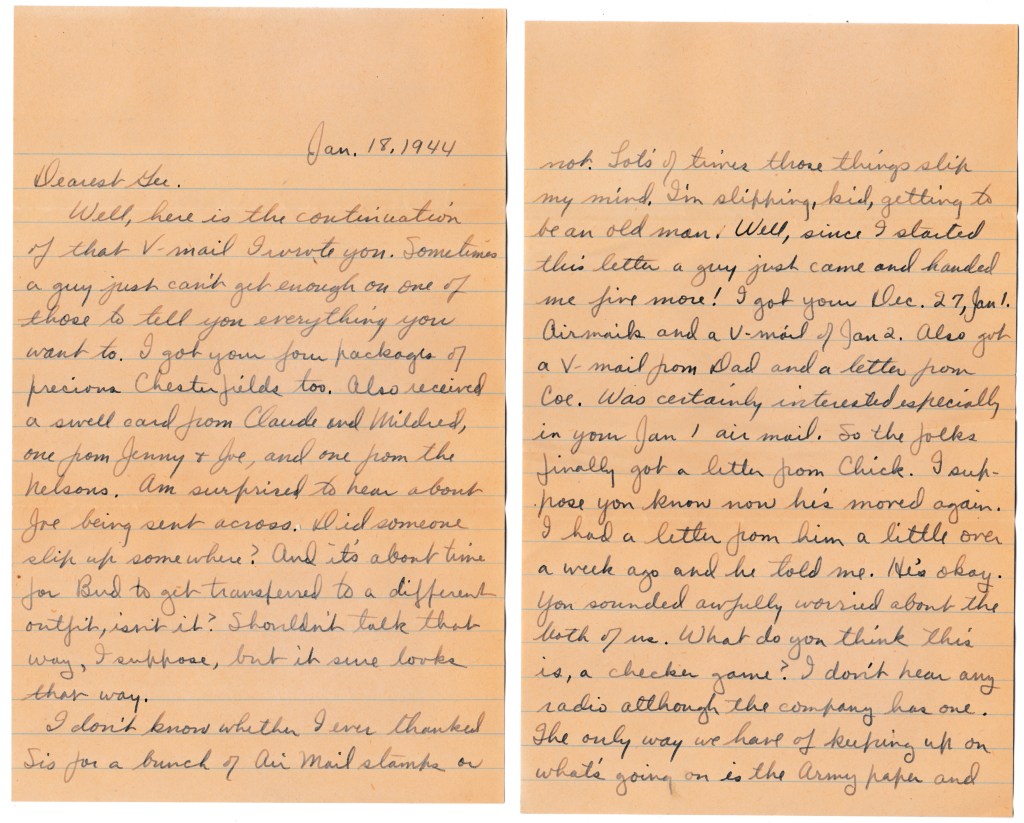 Jan. 18, 1944
Dearest Lee.
Well, here is the continuation
of that V-mail I wrote you. Sometimes
a guy just can't get enough on one of
those to tell you everything you
want to. I got your four packages of
precious Chesterfields too. Also received
a swell card from Claude and Mildred,
one from Jenny & Joe, and one from the
Nelsons. Am surprised to hear about
Joe being sent across. Did someone
slip up somewhere? And it's about time
for Bud to get transferred to a different
outfit, isn't it? Shouldn't talk that
way, I suppose, but it sure looks
that way.
I don't know whether I ever thanked
Sis for a bunch of Air Mail stamps or
not. Lots of times those things slip
my mind. I'm slipping, kid, getting to
be an old man. Well, since I started
this letter a guy just came and handed
me five more! I got your Dec. 27, Jan 1.
Airmails and a V-mail of Jan 2. Also got
a V-mail from Dad and a letter from
Coe. Was certainly interested especially
in your Jan 1 air mail. So the folks
finally got a letter from Chick. I sup-
pose you know now he's moved again.
I had a letter from him a little over
a week ago and he told me. He's okay.
You sounded awfully worried about the
both of us. What do you think this
is, a checker game? I don't hear any
radio although the company has one.
The only way we have of keeping up on
what's going on is the Army paper and